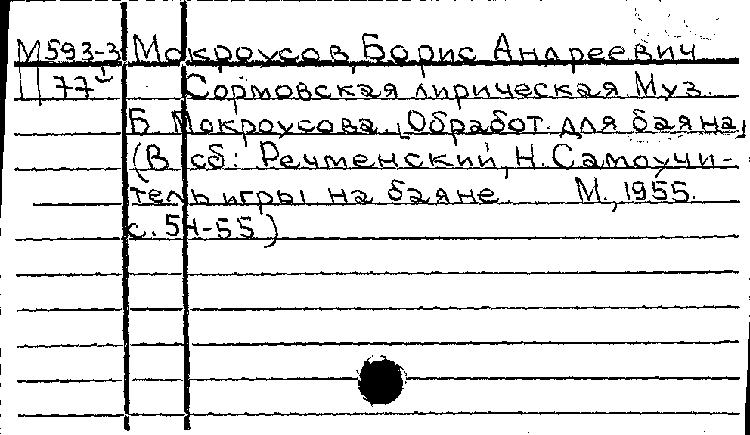 М593-3 Мокроусов, Борис Андреевич
77 Сормовская лирическая Муз.
Б. Мокроусова. [Обработ. для баяна]
(В сб: Речменский, Н. Самоучи-
тель игры на баяне. М., 1955.
с. 54-55)